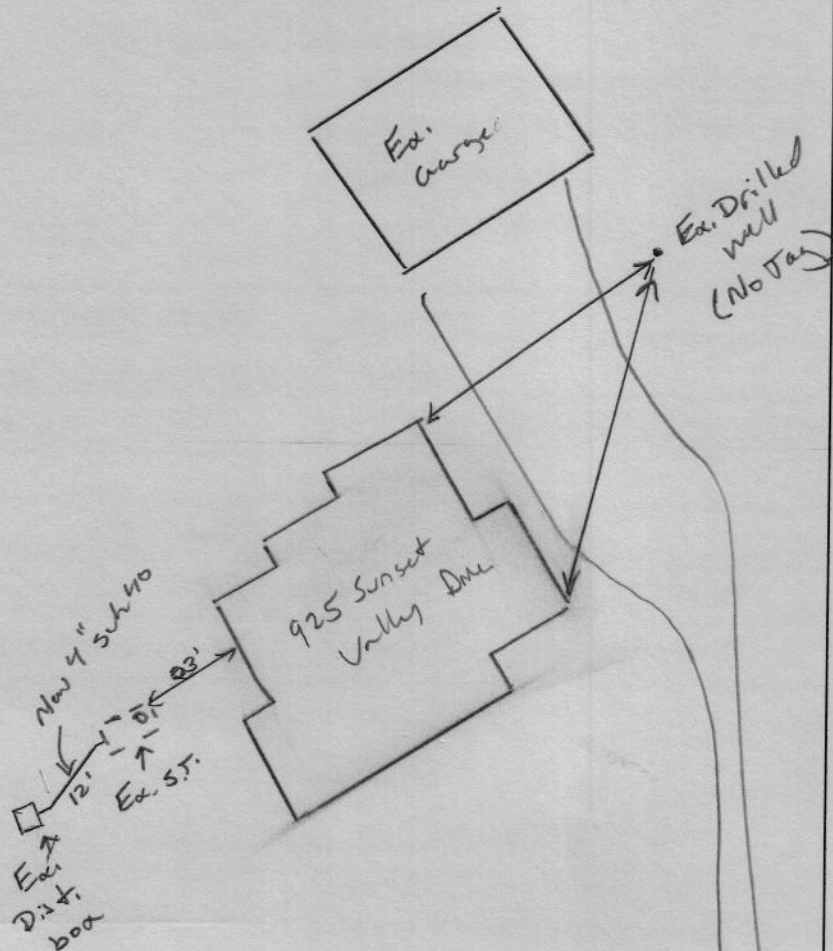 Ex.
Garage
Ex. Drilled
well
(No Tag)
925 Sunset
Valley Drive
New 4" sch 40
12'
Ex. S.T.
Ex.
Dist.
box